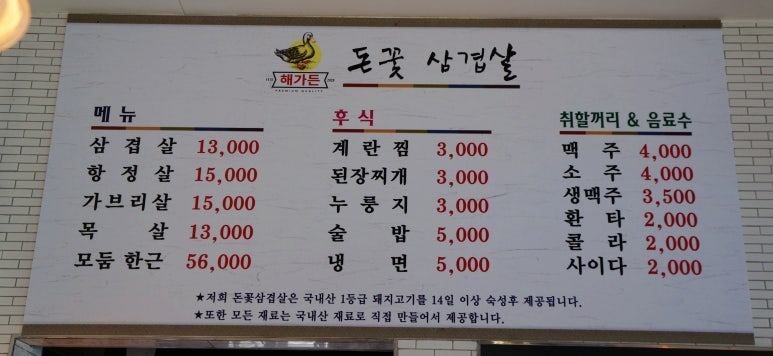 돈꽃 삼겹살
해가든
PREMIUM QUALITY
메뉴
삼겹살 13,000
항정살 15,000
가브리살 15,000
목살 13,000
모둠 한근 56,000
후식
계란찜 3,000
된장찌개 3,000
누룽지 3,000
술밥 5,000
냉면 5,000
취할꺼리 & 음료수
맥주 4,000
소주 4,000
생맥주 3,500
환타 2,000
콜라 2,000
사이다 2,000
★저희 돈꽃삼겹살은 국내산 1등급 돼지고기를 14일 이상 숙성후 제공됩니다.
★또한 모든 재료는 국내산 재료로 직접 만들어서 제공합니다.